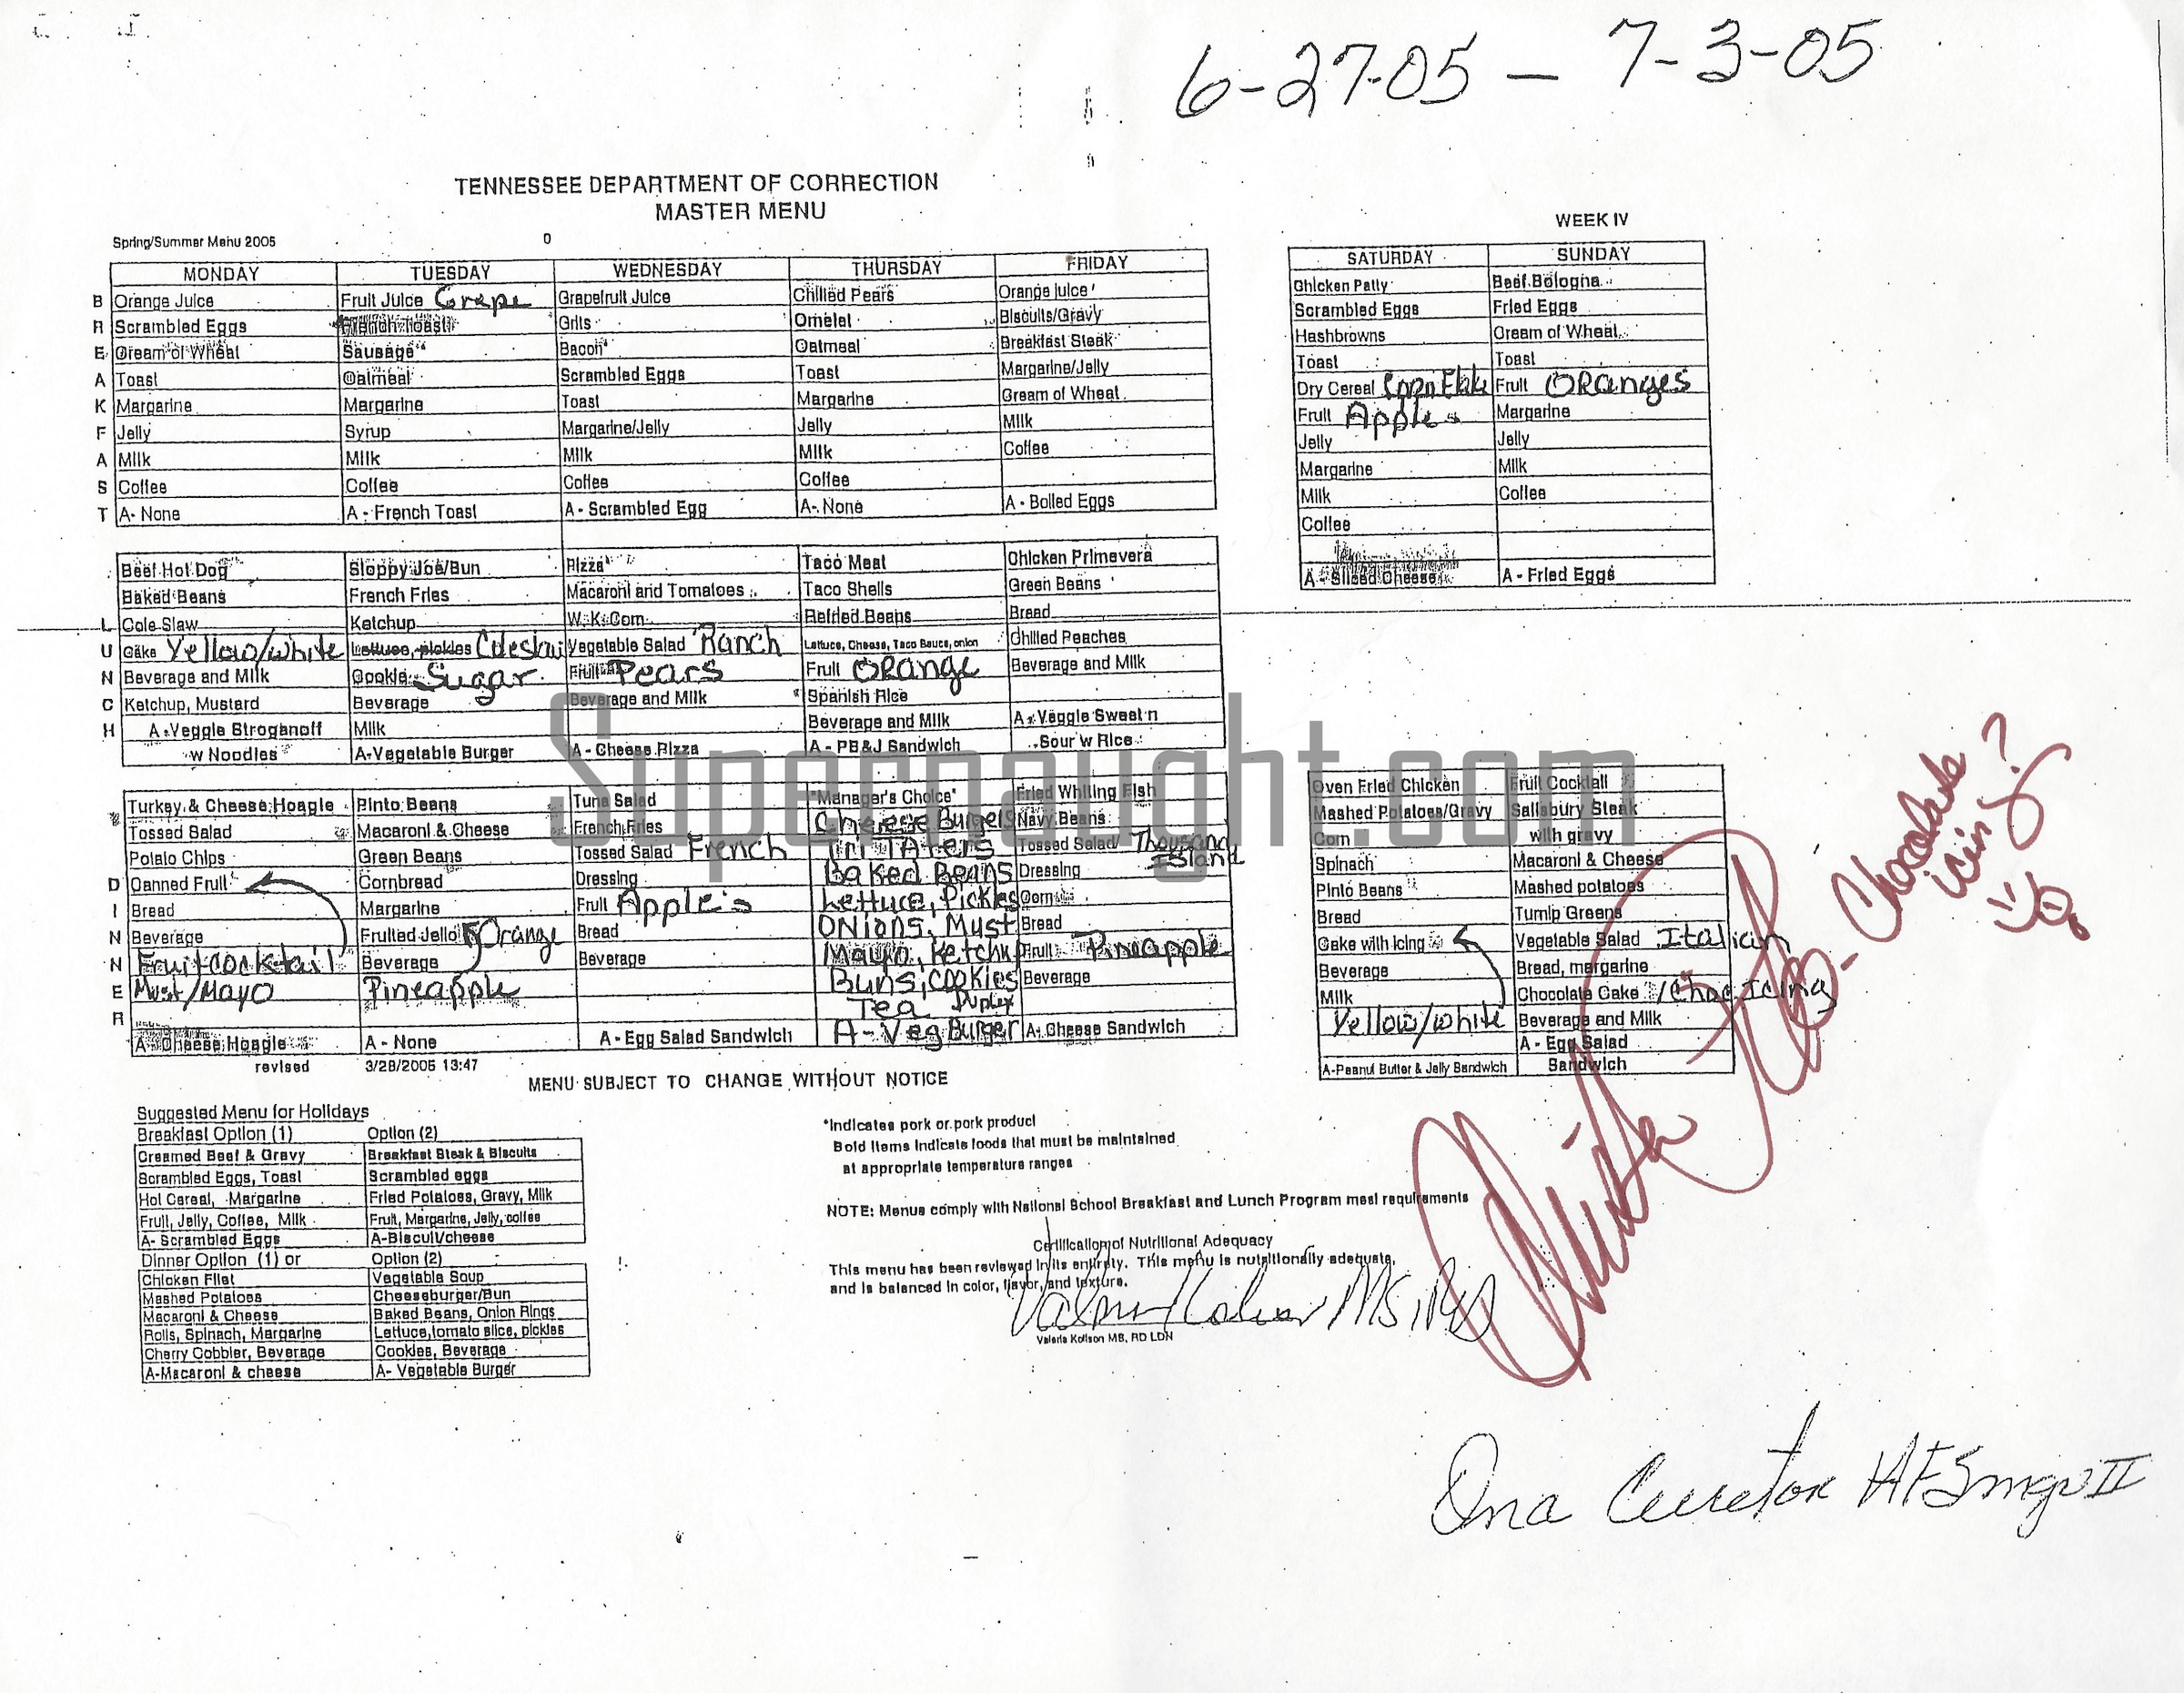 6-27-05 — 7-3-05
TENNESSEE DEPARTMENT OF CORRECTION
MASTER MENU
WEEK IV
Spring/Summer Menu 2005
0
MONDAY TUESDAY WEDNESDAY THURSDAY FRIDAY
B Orange Juice Fruit Juice Grape Grapefruit Juice Chilled Pears Orange juice
R Scrambled Eggs French Toast Grits Omelet Biscuits/Gravy
E Cream of Wheat Sausage Bacon Oatmeal Breakfast Steak
A Toast Oatmeal Scrambled Eggs Toast Margarine/Jelly
K Margarine Margarine Toast Margarine Cream of Wheat
F Jelly Syrup Margarine/Jelly Jelly Milk
A Milk Milk Milk Milk Coffee
S Coffee Coffee Coffee Coffee
T A- None A - French Toast A - Scrambled Egg A- None A - Boiled Eggs
SATURDAY SUNDAY
Chicken Patty Beef Bologna
Scrambled Eggs Fried Eggs
Hashbrowns Cream of Wheat
Toast Toast
Dry Cereal Corn Flake Fruit ORanges
Fruit Apples Margarine
Jelly Jelly
Margarine Milk
Milk Coffee
Coffee
A - Sliced Cheese A - Fried Eggs
Beef Hot Dog Sloppy Joe/Bun Pizza Taco Meat Chicken Primevera
Baked Beans French Fries Macaroni and Tomatoes Taco Shells Green Beans
L Cole Slaw Ketchup W. K. Corn Refried Beans Bread
U Cake Yellow/white Lettuce, pickles Coleslaw Vegetable Salad Ranch Lettuce, Cheese, Taco Sauce, onion Chilled Peaches
N Beverage and Milk Cookie Sugar Fruit Pears Fruit ORange Beverage and Milk
C Ketchup, Mustard Beverage Beverage and Milk *Spanish Rice
H A-Veggie Stroganoff Milk Beverage and Milk A-Veggie Sweet n
w Noodles A-Vegetable Burger A - Cheese Pizza A - PB&J Sandwich Sour w Rice
Turkey & Cheese Hoagie Pinto Beans Tuna Salad "Manager's Choice" Fried Whiting Fish
Tossed Salad Macaroni & Cheese French Fries Cheese Burgers Navy Beans
Potato Chips Green Beans Tossed Salad French Tri TAters Tossed Salad/ Thousand Island
D Canned Fruit Cornbread Dressing Baked Beans Dressing
I Bread Margarine Fruit Apple's Lettuce, Pickles Corn
N Beverage Fruited Jello Orange Bread ONions, Must Bread
N Fruitcocktail Beverage Beverage Mayo, Ketchup Fruit Pineapple
E Must/Mayo Pineapple Buns, cookies Beverage
R Tea Duplex
A - Cheese Hoagie A - None A - Egg Salad Sandwich A - Veg Burger A- Cheese Sandwich
Oven Fried Chicken Fruit Cocktail
Mashed Potatoes/Gravy Salisbury Steak
Corn with gravy
Spinach Macaroni & Cheese
Pinto Beans Mashed potatoes
Bread Turnip Greens
Cake with Icing Vegetable Salad Italian
Beverage Bread, margarine
Milk Chocolate Cake /Choc Icing
Yellow/white Beverage and Milk
A - Egg Salad
A-Peanut Butter & Jelly Sandwich Sandwich
Chocolate
icing?
revised 3/28/2005 13:47
MENU SUBJECT TO CHANGE WITHOUT NOTICE
Supernaught.com
Suggested Menu for Holidays
Breakfast Option (1) Option (2)
Creamed Beef & Gravy Breakfast Steak & Biscuits
Scrambled Eggs, Toast Scrambled eggs
Hot Cereal, Margarine Fried Potatoes, Gravy, Milk
Fruit, Jelly, Coffee, Milk Fruit, Margarine, Jelly, coffee
A- Scrambled Eggs A-Biscuit/cheese
Dinner Option (1) or Option (2)
Chicken Filet Vegetable Soup
Mashed Potatoes Cheeseburger/Bun
Macaroni & Cheese Baked Beans, Onion Rings
Rolls, Spinach, Margarine Lettuce,tomato slice, pickles
Cherry Cobbler, Beverage Cookies, Beverage
A-Macaroni & cheese A- Vegetable Burger
*Indicates pork or pork product
Bold Items indicate foods that must be maintained
at appropriate temperature ranges
NOTE: Menus comply with National School Breakfast and Lunch Program meal requirements
Certification of Nutritional Adequacy
This menu has been reviewed in its entirety. This menu is nutritionally adequate,
and is balanced in color, flavor, and texture.
MS, RD
Valerie Kolison MS, RD LDN